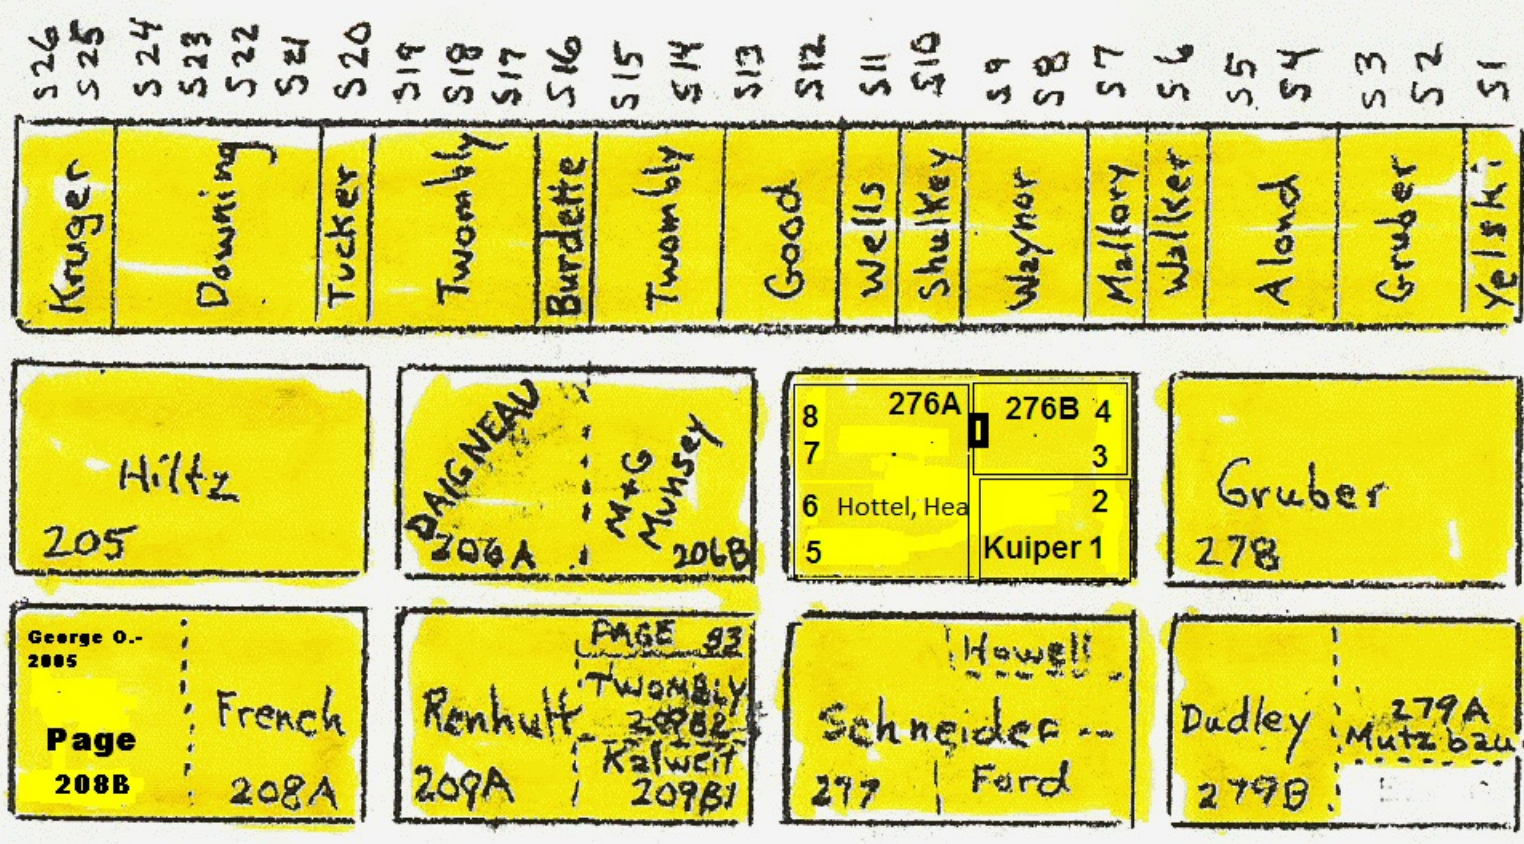 S26 S25 S24 S23 S22 S21 S20 S19 S18 S17 S16 S15 S14 S13 S12 S11 S10 S9 S8 S7 S6 S5 S4 S3 S2 S1
Kruger Downing Tucker Twombly Burdette Twombly Good Wells Shulkey Waynor Mallory Walker Alond Gruber Yelski
Hiltz
205
DAIGNEAU
206A
M+G
Munsey
206B
8 276A
7
6 Hottel, Hea
5
276B 4
3
2
Kuiper 1
Gruber
278
George O.-
2005
Page
208B
French
208A
Renhult
209A
PAGE 93
TWOMBLY
209B2
Kalweit
209B1
Howell
Schneider --
277
Ford
Dudley
279B
279A
Mutzbau